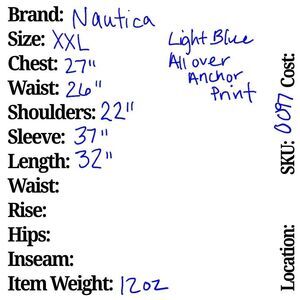 Brand: Nautica
Size: XXL
Chest: 27"
Waist: 26"
Shoulders: 22"
Sleeve: 37"
Length: 32"
Waist:
Rise:
Hips:
Inseam:
Item Weight: 12oz
Light Blue
All over
Anchor
Print
SKU: 0097 Cost:
Location: